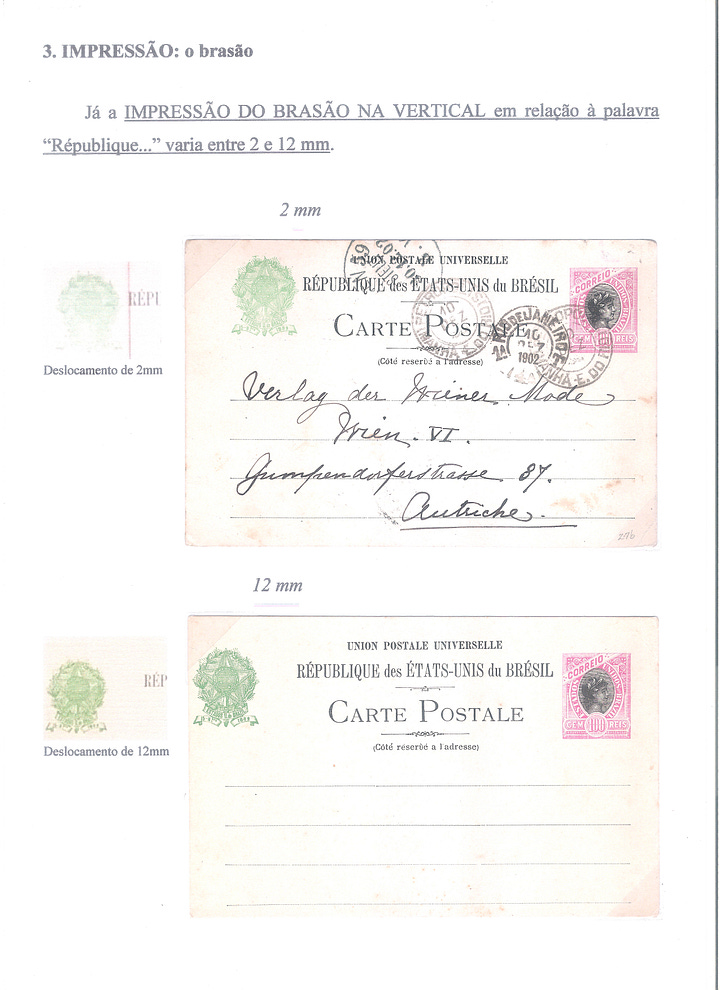 3. IMPRESSÃO: o brasão
Já a IMPRESSÃO DO BRASÃO NA VERTICAL em relação à palavra
“République...” varia entre 2 e 12 mm.
2 mm
RÉPU
Deslocamento de 2mm
UNION POSTALE UNIVERSELLE
RÉPUBLIQUE des ÉTATS-UNIS du BRÉSIL
CORREIO
CARTE POSTALE
CEM REIS
RIO DE JANEIRO
1902
(Côté reservé a l'adresse)
Verlag der Wiener Mode
Wien. VI.
Gumpendorferstrasse 87.
Autriche.
12 mm
RÉP
Deslocamento de 12mm
UNION POSTALE UNIVERSELLE
RÉPUBLIQUE des ÉTATS-UNIS du BRÉSIL
CORREIO
CARTE POSTALE
CEM 100 REIS
(Côté reservé a l'adresse)